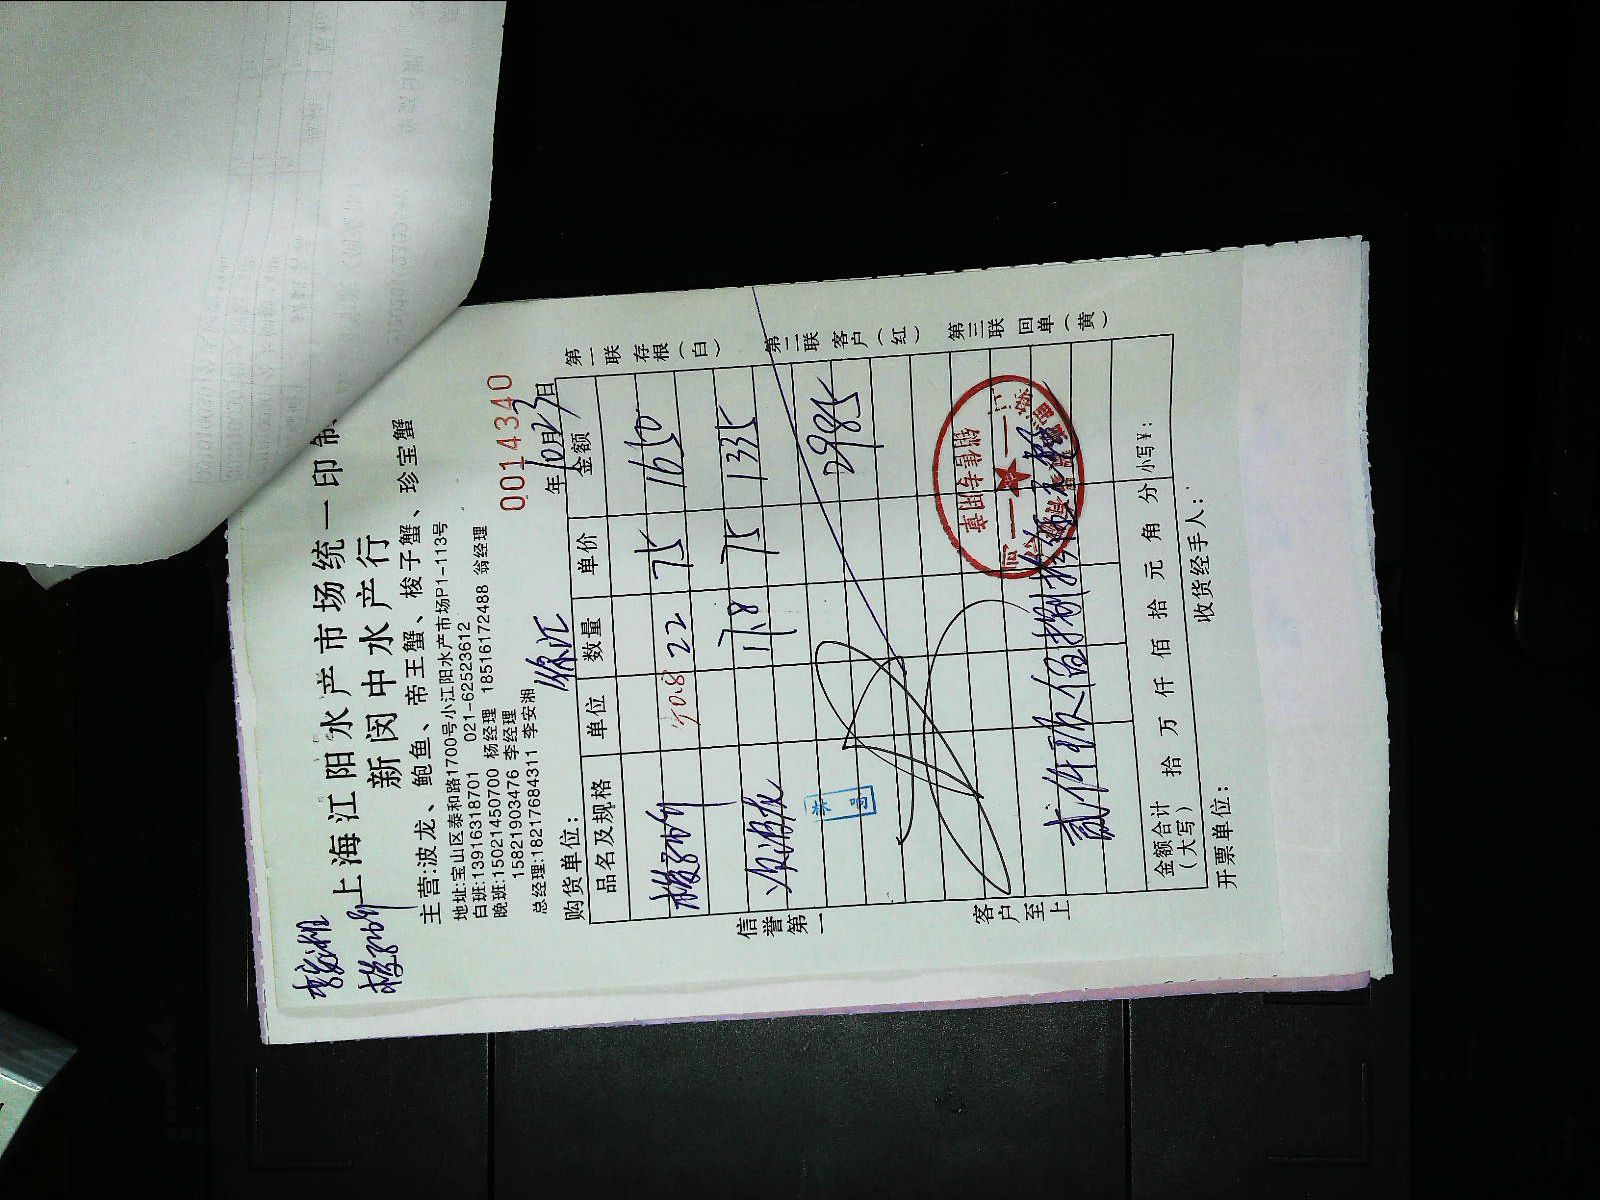 上海江阳水产市场统一印制
新闵中水产行
主营:波龙、鲍鱼、帝王蟹、梭子蟹、珍宝蟹
地址:宝山区泰和路1700号小江阳水产市场P1-113号
白班:13916318701 021-62523612
晚班:15021450700 杨经理 18516172488 翁经理
15821903476 李经理
总经理:18217684311 李安湘
0014340
购货单位: 徐汇 年10月23日
品名及规格 单位 数量 单价 金额
40.8 22 75 1650
17.8 75 1335
2985
贰仟玖佰捌拾伍元整
金额合计(大写) 拾 万 仟 佰 拾 元 角 分 小写¥:
开票单位: 收货经手人:
信誉第一
客户至上
第一联存根(白)
第二联客户(红)
第三联回单(黄)
销售专用章